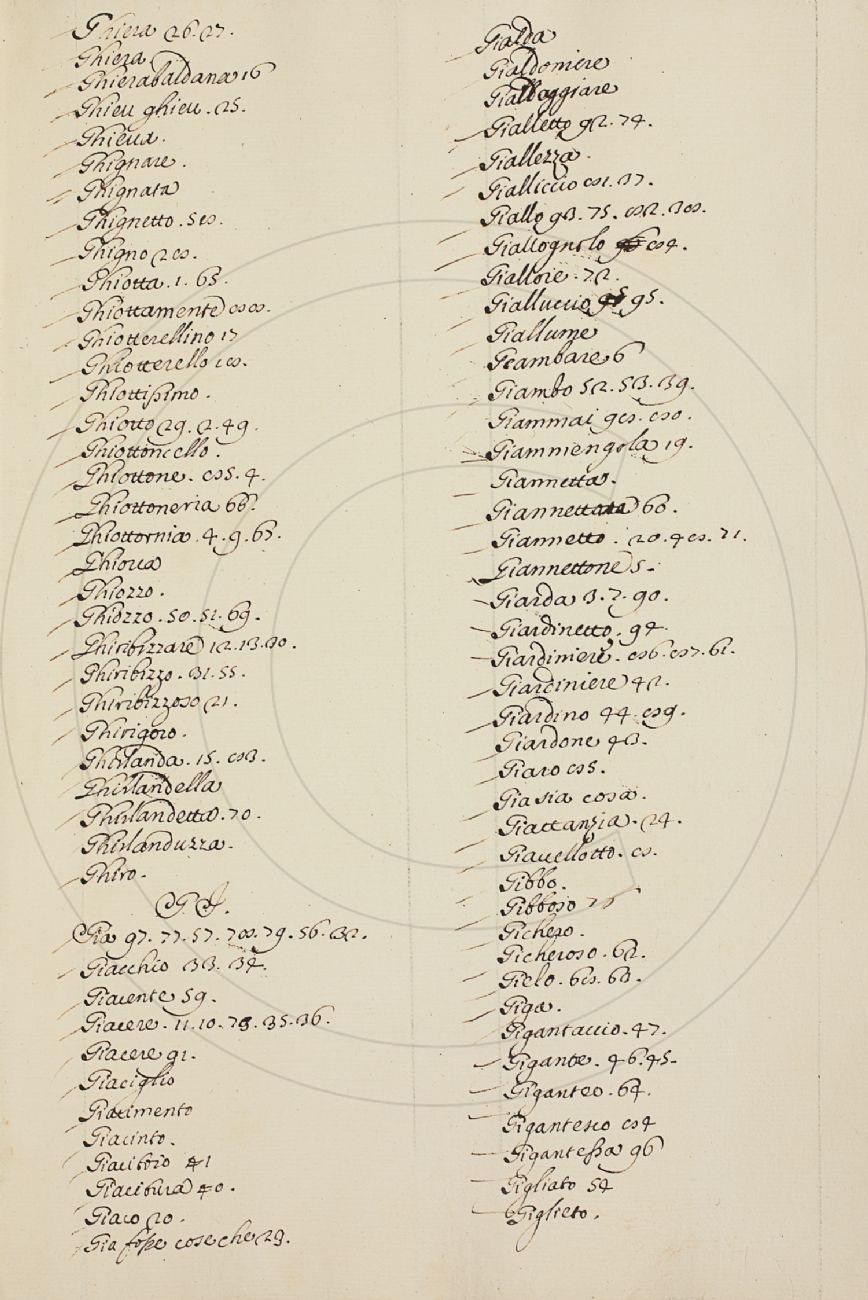 Ghiera 26.27.
Ghiera
Ghierabaldana 16
Ghieu ghieu. 25.
Ghieua.
Ghignare.
Ghignata
Ghignetto. 58.
Ghigno 28.
Ghiotta. 1. 65.
Ghiottamente 88.
Ghiotterellino 17
Ghiotterello 18.
Ghiottißimo.
Ghiotto 29. 2. 49.
Ghiottoncello.
Ghiottone. 85. 4.
Ghiottoneria 66.
Ghiottornia. 4. 9. 67.
Ghioua
Ghiozzo.
Ghiozzo. 50. 51. 69.
Ghiribizzare 12. 13. 30.
Ghiribizzo. 31. 55.
Ghiribizzoso 21.
Ghirigoro.
Ghirlanda. 15. 83.
Ghirlandella
Ghirlandetta. 70.
Ghirlanduzza.
Ghiro.
G I.
Gia 97. 77. 57. 78. 79. 56. 32.
Giacchio 33. 34.
Giacente 59.
Giacere. 11. 10. 78. 35. 36.
Giacere 91.
Giaciglio
Giacimento
Giacinto.
Giacitoio 41
Giacitura 40.
Giaco 20.
Gia foße cose che 29.
Gialda
Gialdoniere
Gialleggiare
Gialletto 92. 74.
Giallezza.
Gialliccio 81. 37.
Giallo 93. 75. 82. 38.
Giallognolo 84.
Giallore. 72.
Gialluccio 95.
Giallume
Gcambare 6
Giambo 52. 53. 39.
Giammai 98. 80.
Giammengola 19.
Giannetta.
Giannettata 60.
Giannetto. 20. 48. 71.
Giannettone 5.
Giarda 3. 7. 90.
Giardinetto. 94.
Giardiniere. 86. 87. 61.
Giardiniere 42.
Giardino 44. 89.
Giardone 43.
Giaro 85.
Gia sia cosa.
Giattanzia. 24.
Giauellotto. 8.
Gibbo.
Gibboso 76
Gichero.
Gicheroso. 62.
Gielo. 68. 63.
Giga.
Gigantaccio. 47.
Gigante. 46. 45.
Giganteo. 64.
Gigantesco 84
Giganteßa 96
Gigliato 54
Giglieto.